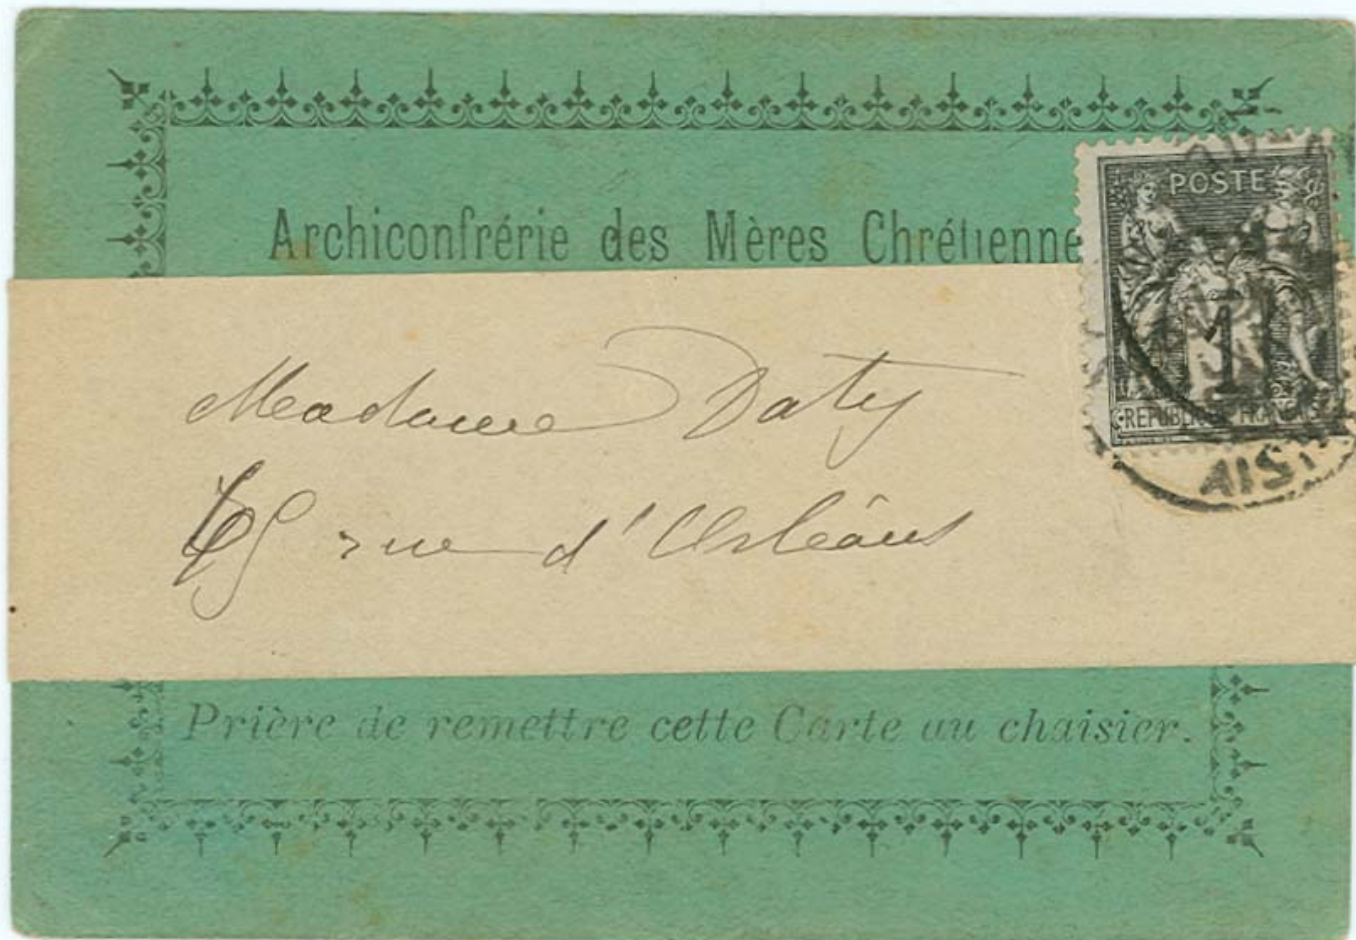 Archiconfrérie des Mères Chrétienne
POSTE
1
REPUBLIQUE FRANÇAISE
AIS
Madame Daty
rue d'Orléans
Prière de remettre cette Carte au chaisier.